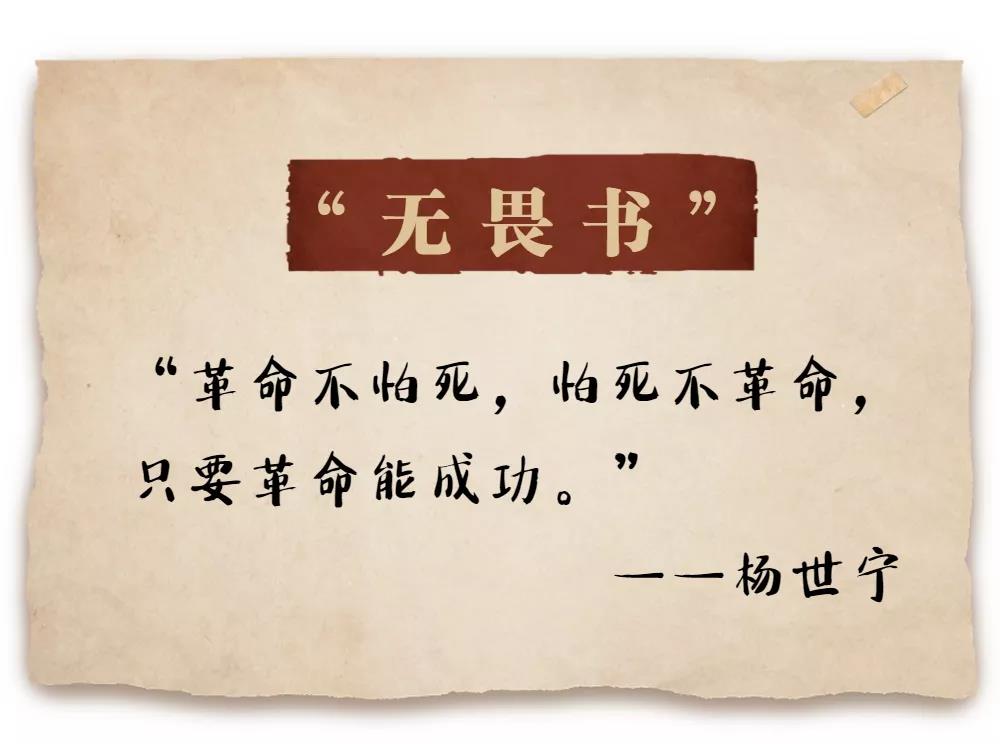 “无畏书”
“革命不怕死，怕死不革命，
只要革命能成功。”
——杨世宁